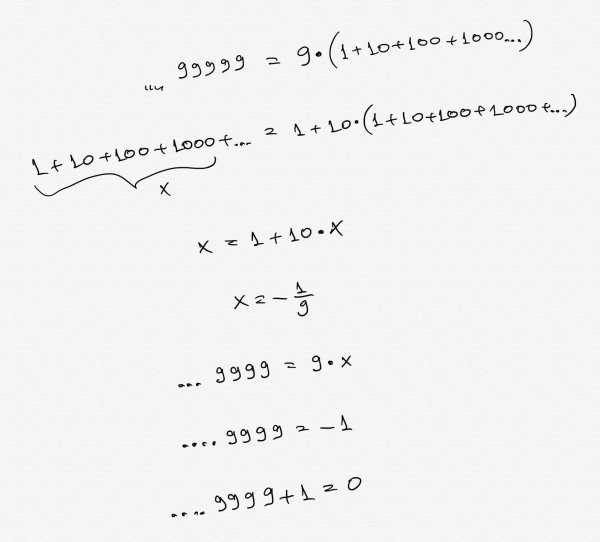 ....99999 = 9•(1+10+100+1000...)
1+10+100+1000+... = 1+10•(1+10+100+1000+...)
x
x = 1+10•x
x = -1/9
...9999 = 9•x
....9999 = -1
....9999+1=0